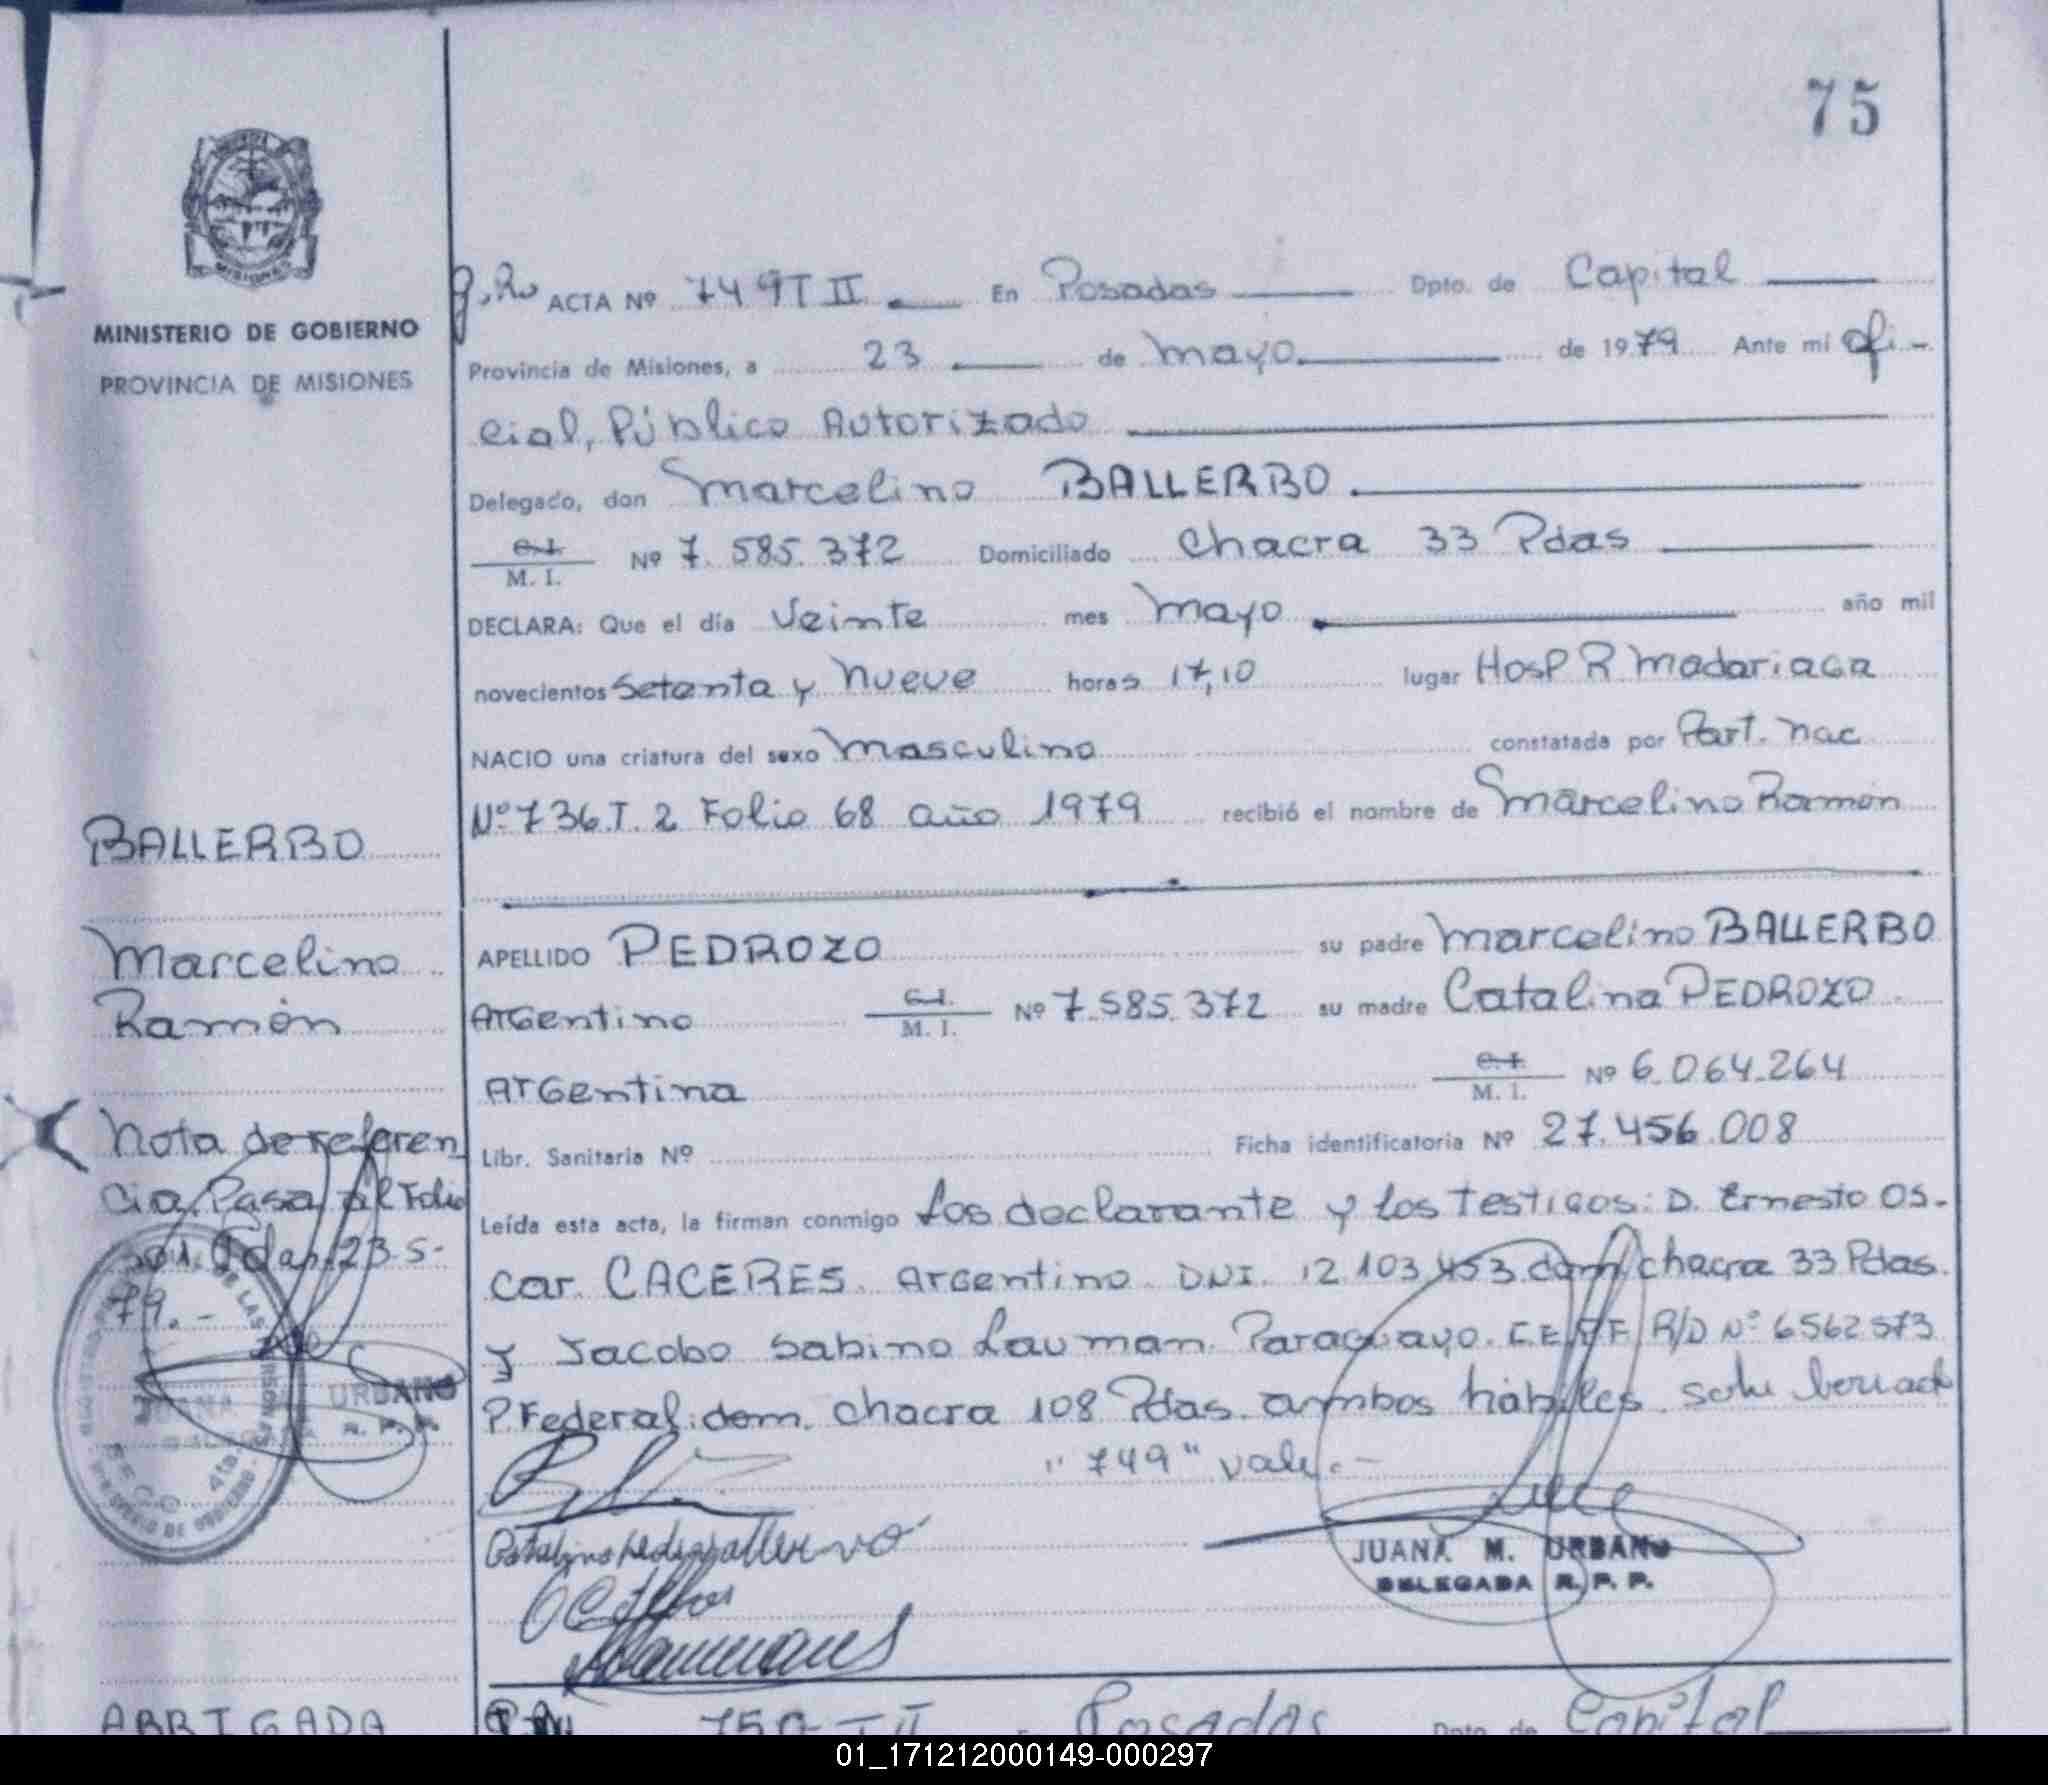 75
MINISTERIO DE GOBIERNO
PROVINCIA DE MISIONES
ACTA Nº 749 T II En Posadas Dpto. de Capital
Provincia de Misiones, a 23 de mayo de 1979 Ante mi ofi-
cial, Público Autorizado
Delegado, don Marcelino BALLERBO
C.I. M. I. Nº 7.585.372 Domiciliado chacra 33 Pdas
DECLARA: Que el día Veinte mes mayo año mil
novecientos setenta y nueve horas 17,10 lugar Hosp R. Madariaga
NACIO una criatura del sexo masculino constatada por Part. nac
Nº 736 T. 2 Folio 68 año 1979 recibió el nombre de Marcelino Ramón
APELLIDO PEDROZO su padre Marcelino BALLERBO
Argentino C.I. M. I. Nº 7.585.372 su madre Catalina PEDROZO
Argentina C.I. M. I. Nº 6.064.264
Libr. Sanitaria Nº Ficha identificatoria Nº 27.456.008
Leída esta acta, la firman conmigo Los declarante y los testigos: D. Ernesto Os-
car CACERES. Argentino. DNI. 12.103.453 dom. chacra 33 Pdas.
y Jacobo Sabino Lauman. Paraguayo. R/D Nº 6562573
P Federal. dom. chacra 108 Pdas. ambos hábiles.
"749" vale.-
JUANA M. URBANO
DELEGADA R. P. P.
BALLERBO
Marcelino
Ramón
Nota de referen
cia. Pasa al Folio
Pdas. 23-5-
79.-
URBANO
R. P. P.
ABRIGADA
750 T II Posadas Dpto de Capital
01_171212000149-000297